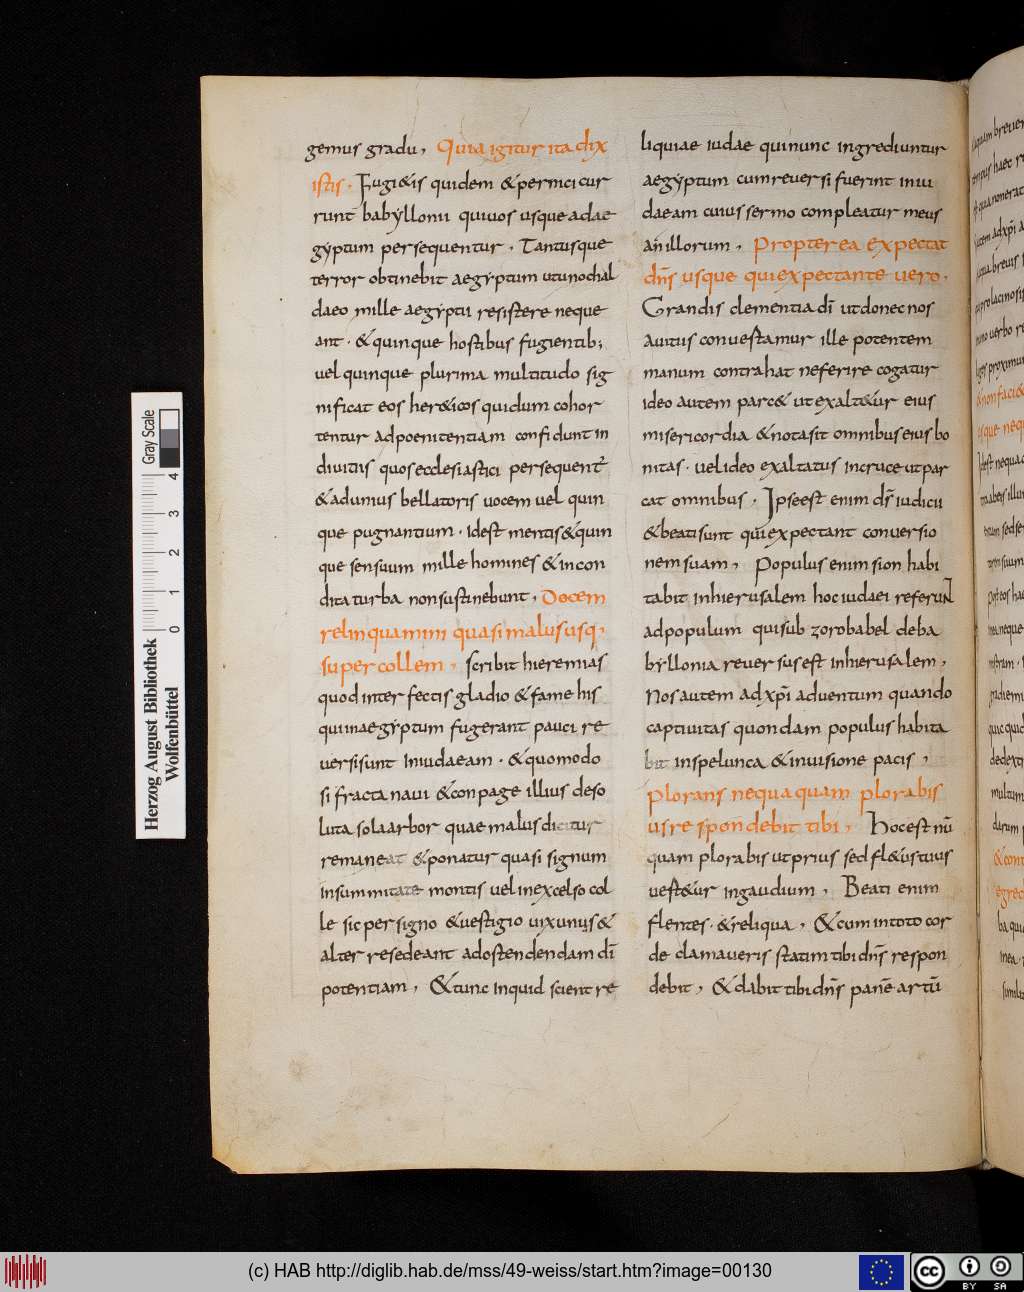 gemus gradu, Quia igitur ita dix
istis. Fugi&is quidem &pernici cur
runt babyllonii qui uos usque ad ae
gyptum persequentur. Tantusque
terror obtinebit aegyptum ut uno chal
daeo mille aegyptii resistere neque
ant. & quinque hostibus fugientib;
uel quinque plurima multitudo sig
nificat eos her&icos qui dum cohor
tentur ad poenitentiam confidunt in
diuitiis quos ecclesiastici persequent̄
& aduinus bellatoris uocem uel quin
que pugnantium. idest mentis & quin
que sensuum mille homines & incon
dita turba non sustinebunt, Docem
relinquamini quasi malus usq,
super collem, scribit hieremias
quod interfectis gladio & fame his
qui in aegyptum fugerant pauci re
uersi sunt in iudaeam. & quomodo
si fracta naui & conpage illius deso
luta sola arbor quae malus dicitur
remaneat & ponatur quasi signum
in summitate montis uel in excelso col
le sic per signo & uestigio uix unus &
alter resedeant ad ostendendam dī
potentiam, & tunc inquid scient re
liquiae iudae qui nunc ingrediuntur
aegyptum cum reuersi fuerint in iu
daeam cuius sermo compleatur meus
an illorum, Propterea expectat
dn̄s usque qui expectante uero.
Grandis clementia dī ut donec nos
auitus conuestamur ille potentem
manum contrahat ne ferire cogatur
ideo autem parc& ut exalt&ur eius
misericordia & nota sit omnibus eius bo
nitas. uel ideo exaltatus in cruce ut par
cat omnibus. Ipse est enim ds̄ iudicii
& beati sunt qui expectant conuersio
nem suam, Populus enim sion habi
tabit in hierusalem hoc iudaei referuN
ad populum qui sub zorobabel de ba
byllonia reuersus est in hierusalem,
Nos autem ad xp̄i aduentum quando
captiuitas quondam populus habita
bit in spelunca & in uisione pacis,
Plorans nequaquam plorabis
usrespondebit tibi, Hoc est nū
quam plorabis ut prius sed fl&us tuus
uest&ur in gaudium, Beati enim
flentes. & reliqua, & cum in toto cor
de clamaueris statim tibi dn̄s respon
debit, & dabit tibi dn̄s panē artū
Herzog August Bibliothek
Wolfenbüttel
Gray Scale
0 1 2 3 4
(c) HAB http://diglib.hab.de/mss/49-weiss/start.htm?image=00130
cc BY SA